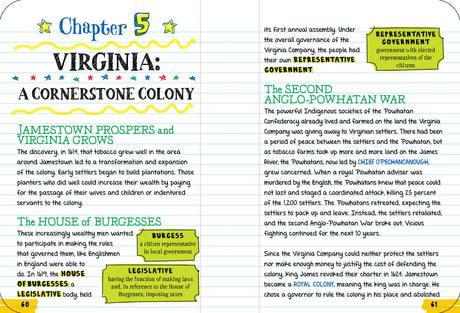 Chapter 5
VIRGINIA:
A CORNERSTONE COLONY
JAMESTOWN PROSPERS and
VIRGINIA GROWS
The discovery, in 1614, that tobacco grew well in the area
around Jamestown led to a transformation and expansion
of the colony. Early settlers began to build plantations. Those
planters who did well could increase their wealth by paying
for the passage of their wives and children or indentured
servants to the colony.
The HOUSE of BURGESSES
These increasingly wealthy men wanted
to participate in making the rules
that governed them, like Englishmen
in England were able to
do. In 1619, the HOUSE
OF BURGESSES, a
LEGISLATIVE body, held
BURGESS
a citizen representative
in local government
LEGISLATIVE
having the function of making laws
and, in reference to the House of
Burgesses, imposing taxes
60
its first annual assembly. Under
the overall governance of the
Virginia Company, the people had
their own REPRESENTATIVE
GOVERNMENT.
REPRESENTATIVE
GOVERNMENT
government with elected
representatives of the
citizens
The SECOND
ANGLO-POWHATAN WAR
The powerful Indigenous societies of the Powhatan
Confederacy already lived and farmed on the land the Virginia
Company was giving away to Virginian settlers. There had been
a period of peace between the settlers and the Powhatan, but
as tobacco farms took up more and more land on the James
River, the Powhatans, now led by CHIEF O'PECHANCANOUGH,
grew concerned. When a royal Powhatan adviser was
murdered by the English, the Powhatans knew that peace could
not last and staged a coordinated attack, killing 25 percent
of the 1,200 settlers. The Powhatans retreated, expecting the
settlers to pack up and leave. Instead, the settlers retaliated,
and the second Anglo-Powhatan War broke out. Vicious
fighting continued for the next 10 years.
Since the Virginia Company could neither protect the settlers
nor make enough money to justify the cost of defending the
colony, King James revoked their charter in 1624. Jamestown
became a ROYAL COLONY, meaning the king was in charge. He
chose a governor to rule the colony in his place and abolished
61